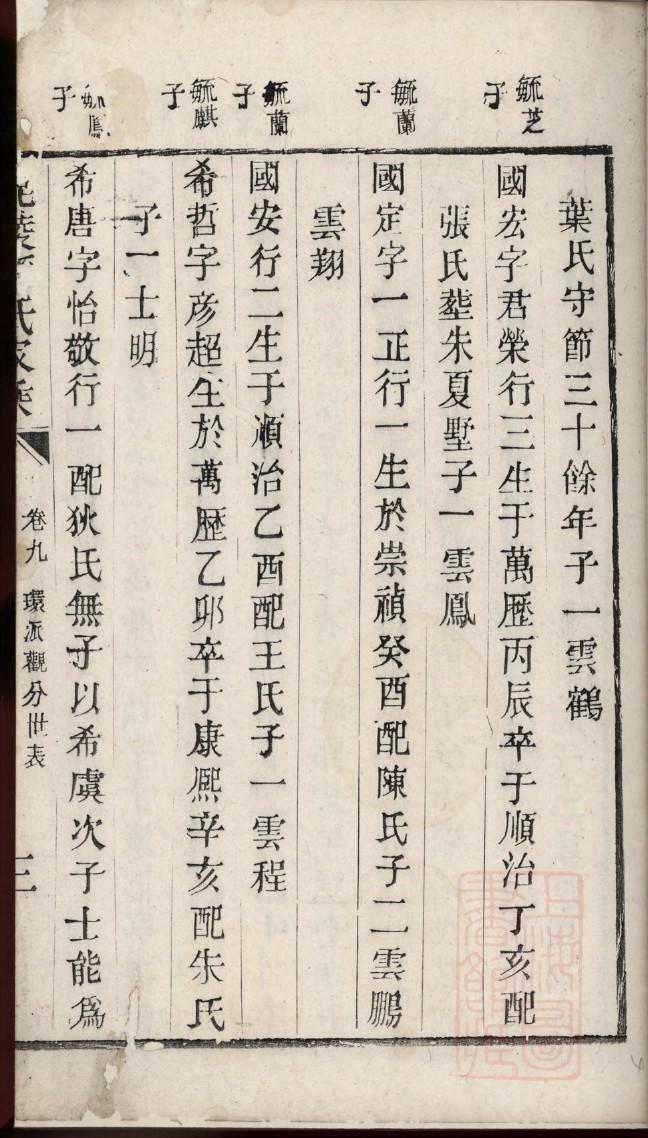 葉氏守節三十餘年子一雲鶴
毓芝
子
國宏字君榮行三生于萬歷丙辰卒于順治丁亥配
張氏塟朱夏墅子一雲鳳
毓蘭
子
國定字一正行一生於崇禎癸酉配陳氏子二雲鵬
雲翔
毓蘭
子
國安行二生于順治乙酉配王氏子一雲程
毓麒
子
希哲字彦超生於萬歷乙卯卒于康熈辛亥配朱氏
子一士明
毓鳳
子
希唐字怡敬行一配狄氏無子以希虞次子士能爲
氏家乘
卷九 環派觀分世表
三